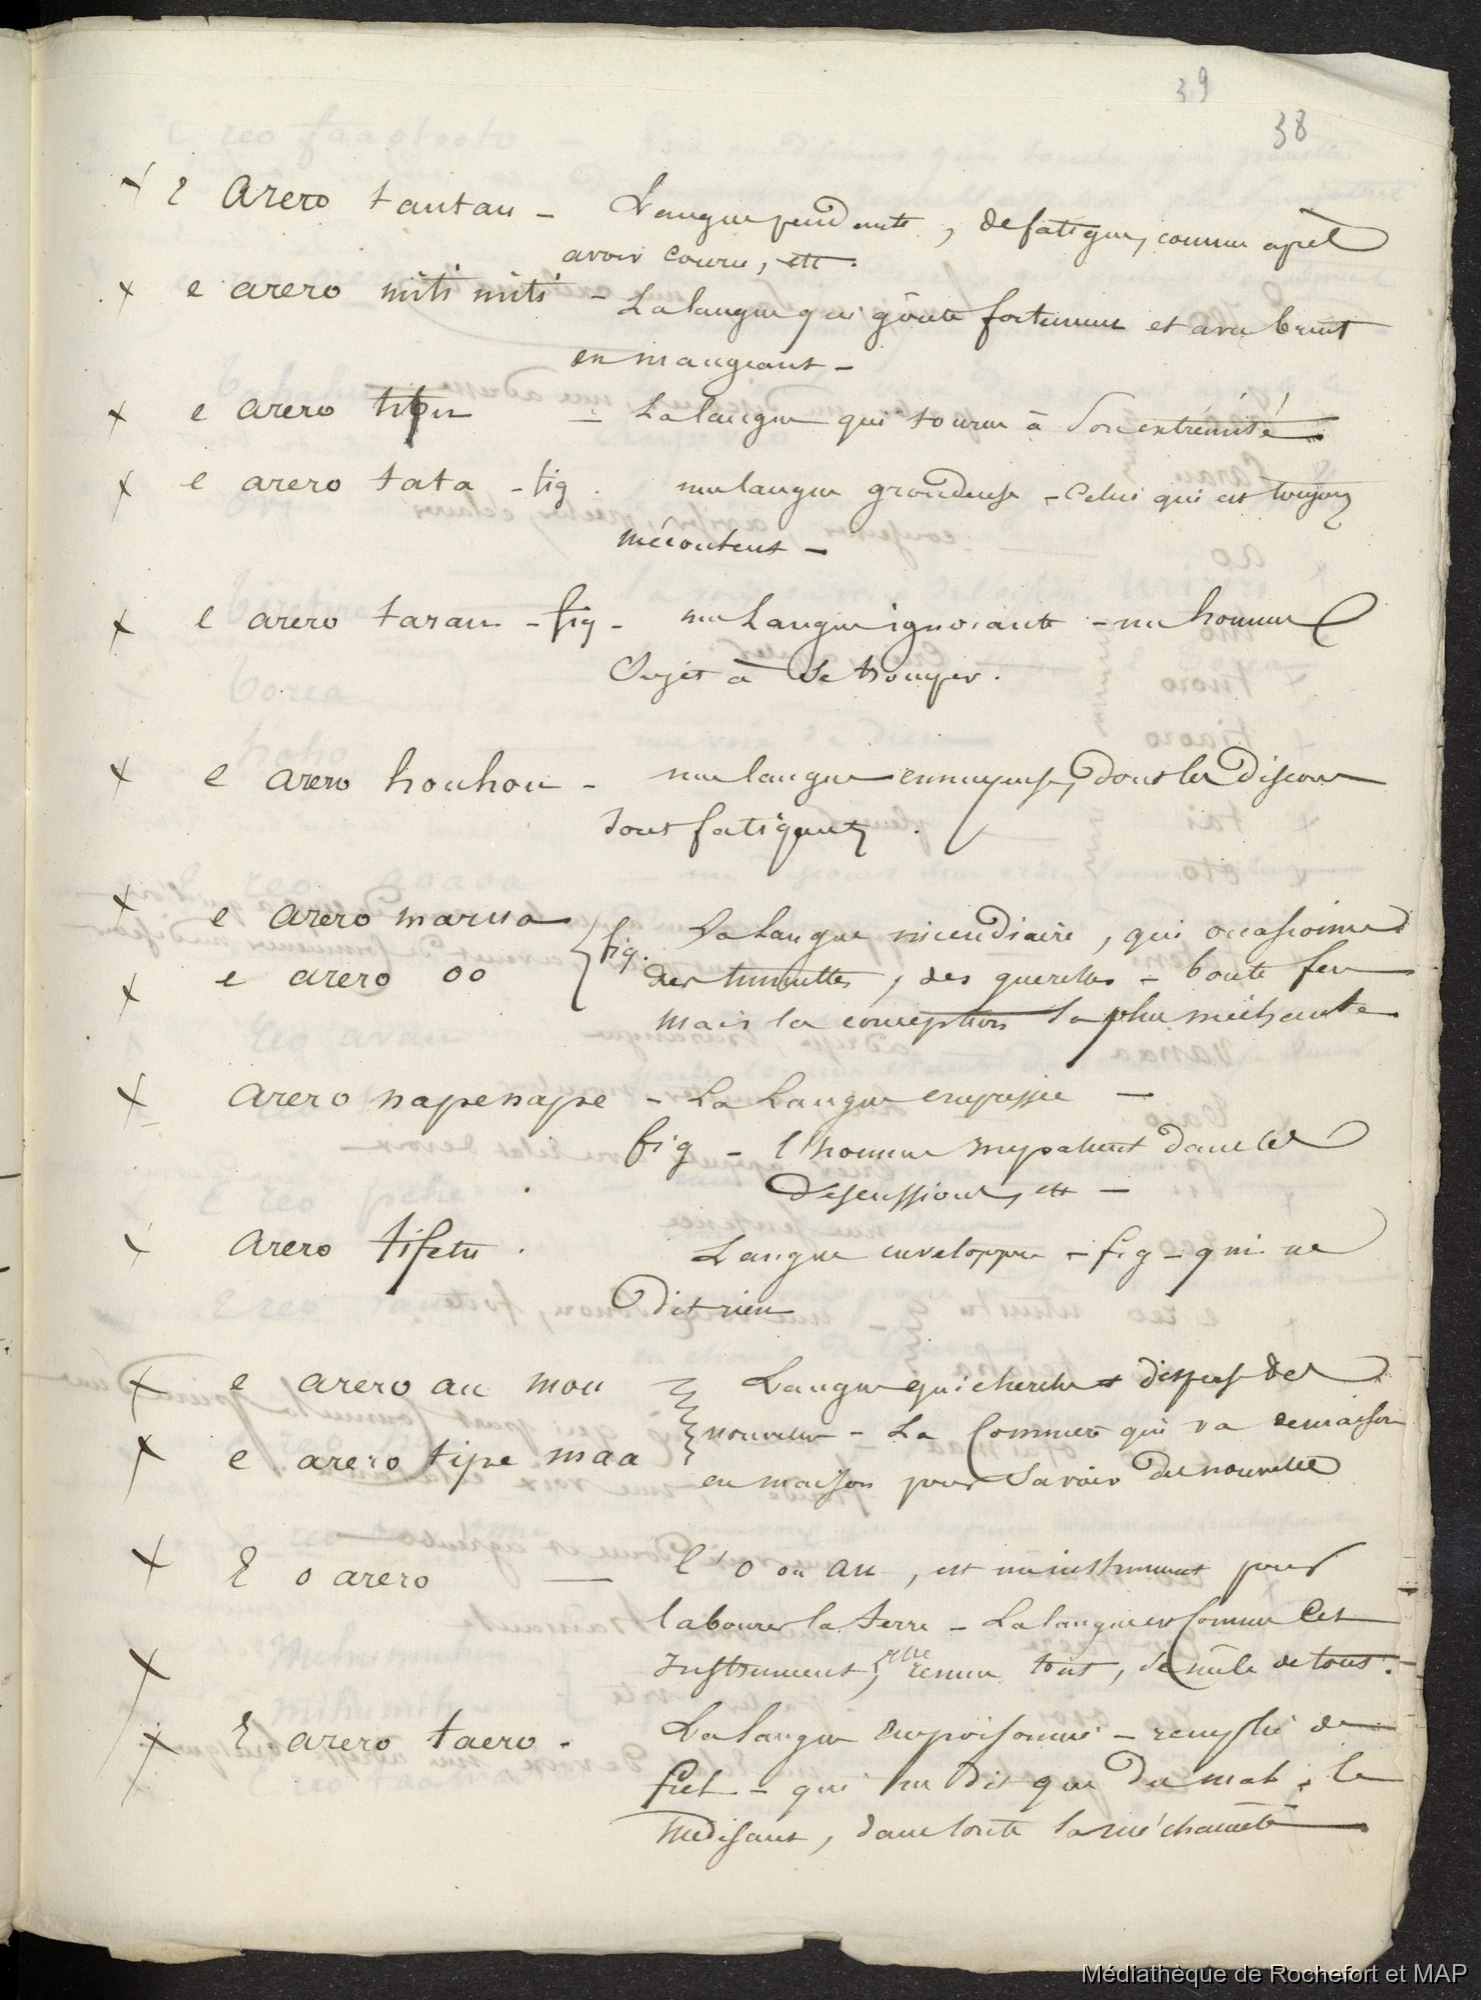 39
38
+ E arero tautau - Langue pendante, de fatigue, comme après
avoir couru, ett.
+ e arero miti miti - La langue qui goûte fortement et avec bruit
en mangeant -
+ e arero titou = La langue qui tourne à son extrémité.
+ e arero tata - fig. une langue grondeuse - celui qui est toujours
mécontent -
+ e arero tarau - fig - une langue ignorante - un homme
sujet à se tromper.
+ e arero houhou - une langue ennuyeuse, dont les discours
sont fatiguants.
+ e arero marua
+ e arero oo
fig. La langue incendiaire, qui occasionne
des tumultes, des querelles - boute feu
mais la conception la plus méchante
+ arero napenape - La langue empressée -
fig - l'homme impatient dans les
discussions, ett -
+ arero tifetu . Langue enveloppée - fig - qui ne
dit rien
+ e arero au mou
+ e arero tipe maa
Langue qui cherche et disperse des
nouvelles - La commère qui va de maison
en maison pour savoir des nouvelles
+ E o arero — l'o ou au, est un instrument pour
labourer la terre - La langue est comme cet
+ instrument, elle remue tout, se mêle de tout. -
+ E arero taero - La langue empoisonnée - remplie de
fiel - qui ne dit que du mal, le
médisant, dans toute sa méchanceté
Médiathèque de Rochefort et MAP